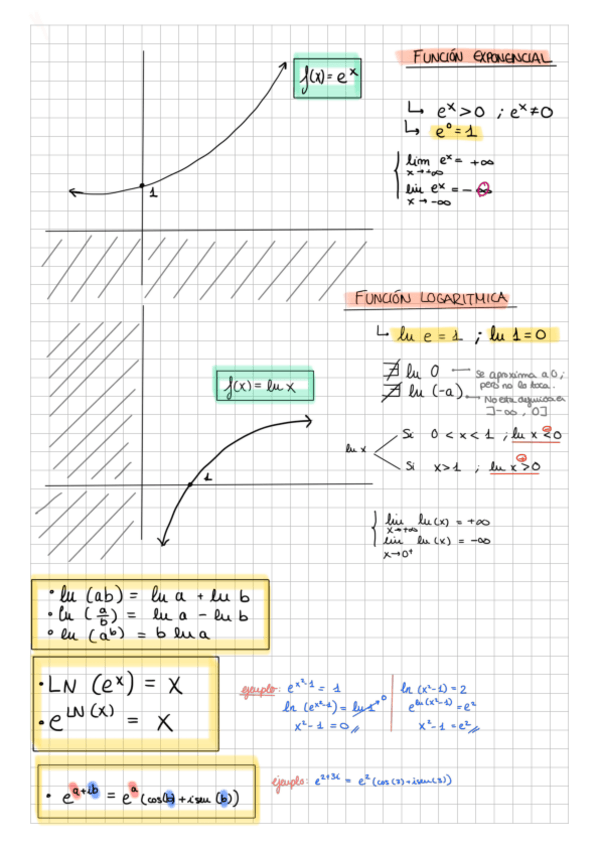 FUNCIÓN EXPONENCIAL
f(x) = e^x
↳ e^x > 0 ; e^x ≠ 0
↳ e^0 = 1
lim e^x = +∞
x→+∞
lim e^x = -∞
x→-∞
1
FUNCIÓN LOGARITMICA
↳ ln e = 1 ; ln 1 = 0
∄ ln 0 — se aproxima a 0, pero no lo toca.
∄ ln (-a) — No esta definida en ]-∞, 0]
f(x) = ln x
ln x
Si 0 < x < 1 ; ln x < 0
Si x > 1 ; ln x > 0
1
lim ln(x) = +∞
x→+∞
lim ln(x) = -∞
x→0⁺
• ln (ab) = ln a + ln b
• ln (a/b) = ln a - ln b
• ln (a^b) = b ln a
• LN (e^x) = X
• e^LN(x) = X
ejemplo: e^(x²-1) = 1
ln (e^(x²-1)) = ln 1 → 0
x² - 1 = 0 //
ln (x²-1) = 2
e^ln(x²-1) = e²
x² - 1 = e² //
• e^(a+ib) = e^a (cos(b) + i sen (b))
ejemplo: e^(2+3i) = e² (cos(3) + i sen(3))